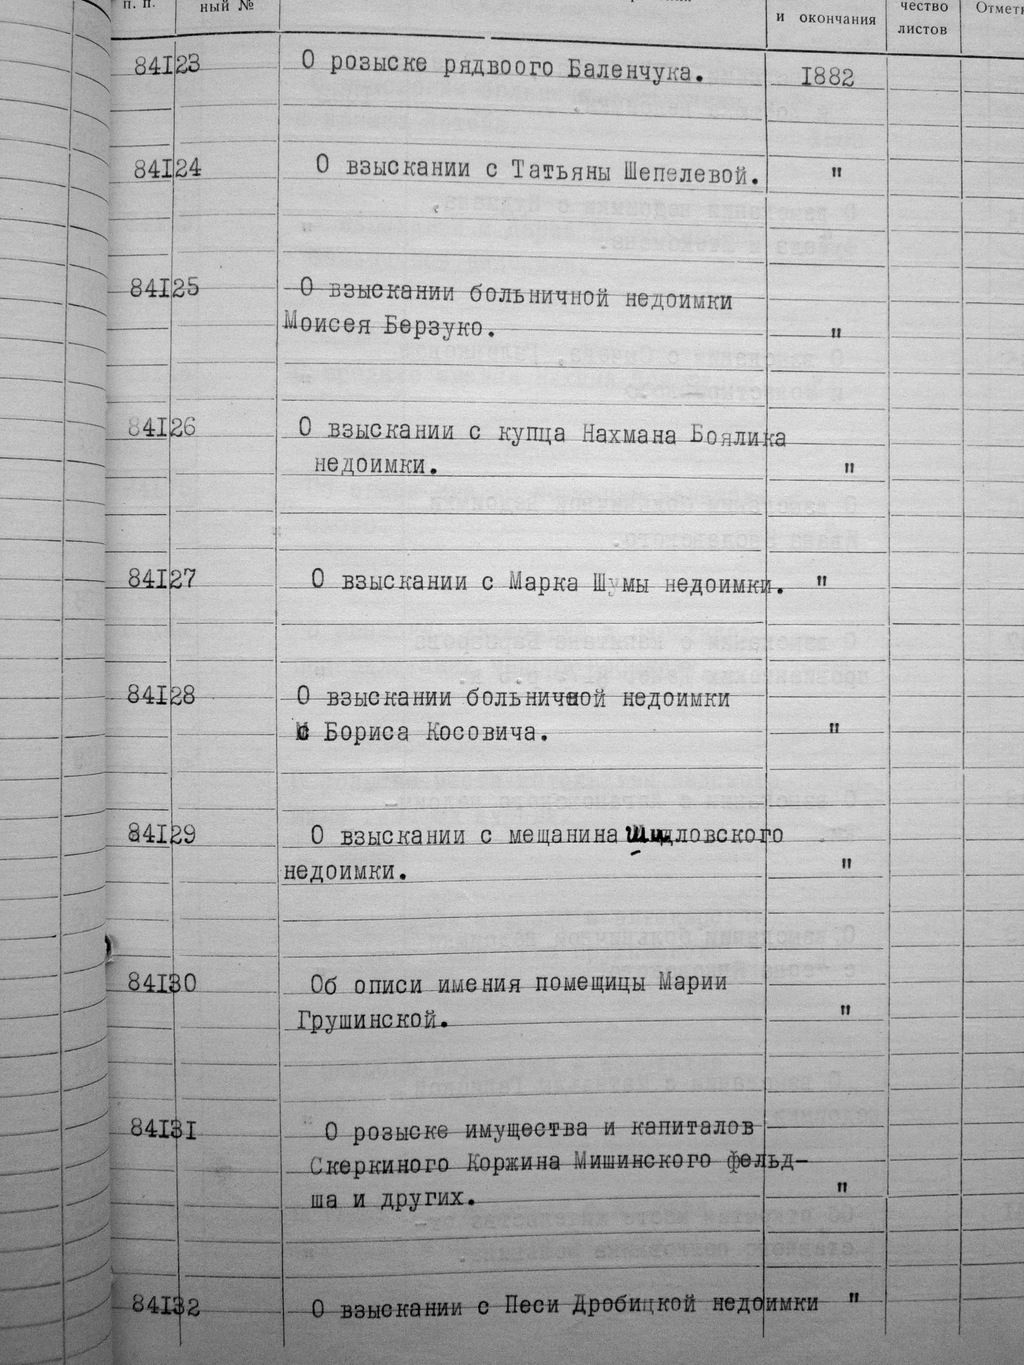 п. п.
ный №
и окончания
чество
листов
84I23 О розыске рядвоого Баленчука. I882
84I24 О взыскании с Татьяны Шепелевой. "
84I25 О взыскании больничной недоимки
Моисея Берзуко. "
84I26 О взыскании с купца Нахмана Боялика
недоимки. "
84I27 О взыскании с Марка Шумы недоимки. "
84I28 О взыскании больничной недоимки
с Бориса Косовича. "
84I29 О взыскании с мещанина Шидловского
недоимки. "
84I30 Об описи имения помещицы Марии
Грушинской. "
84I3I О розыске имущества и капиталов
Скеркиного Коржина Мишинского фельд-
ша и других. "
84I32 О взыскании с Песи Дробицкой недоимки "